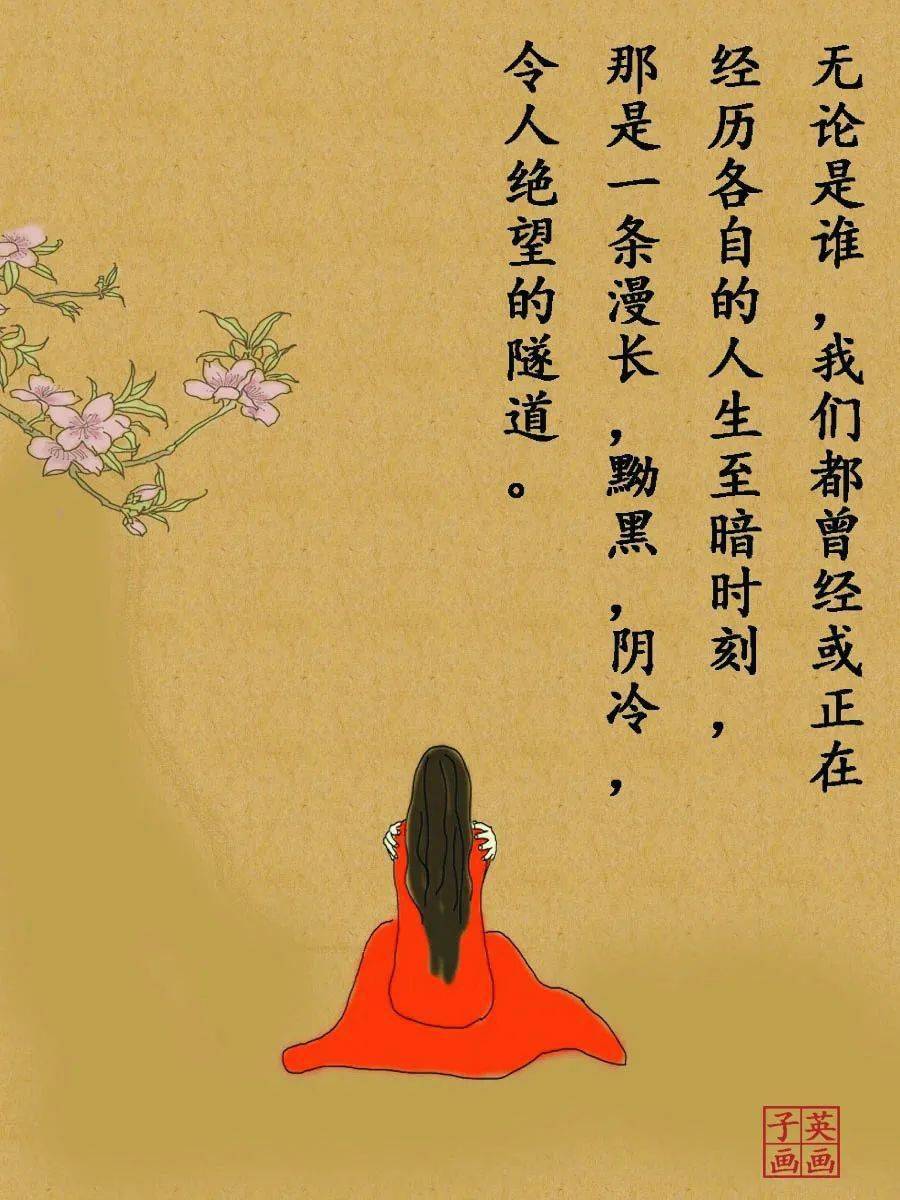 无论是谁,我们都曾经或正在
经历各自的人生至暗时刻,
那是一条漫长,黝黑,阴冷,
令人绝望的隧道。
英画
子画